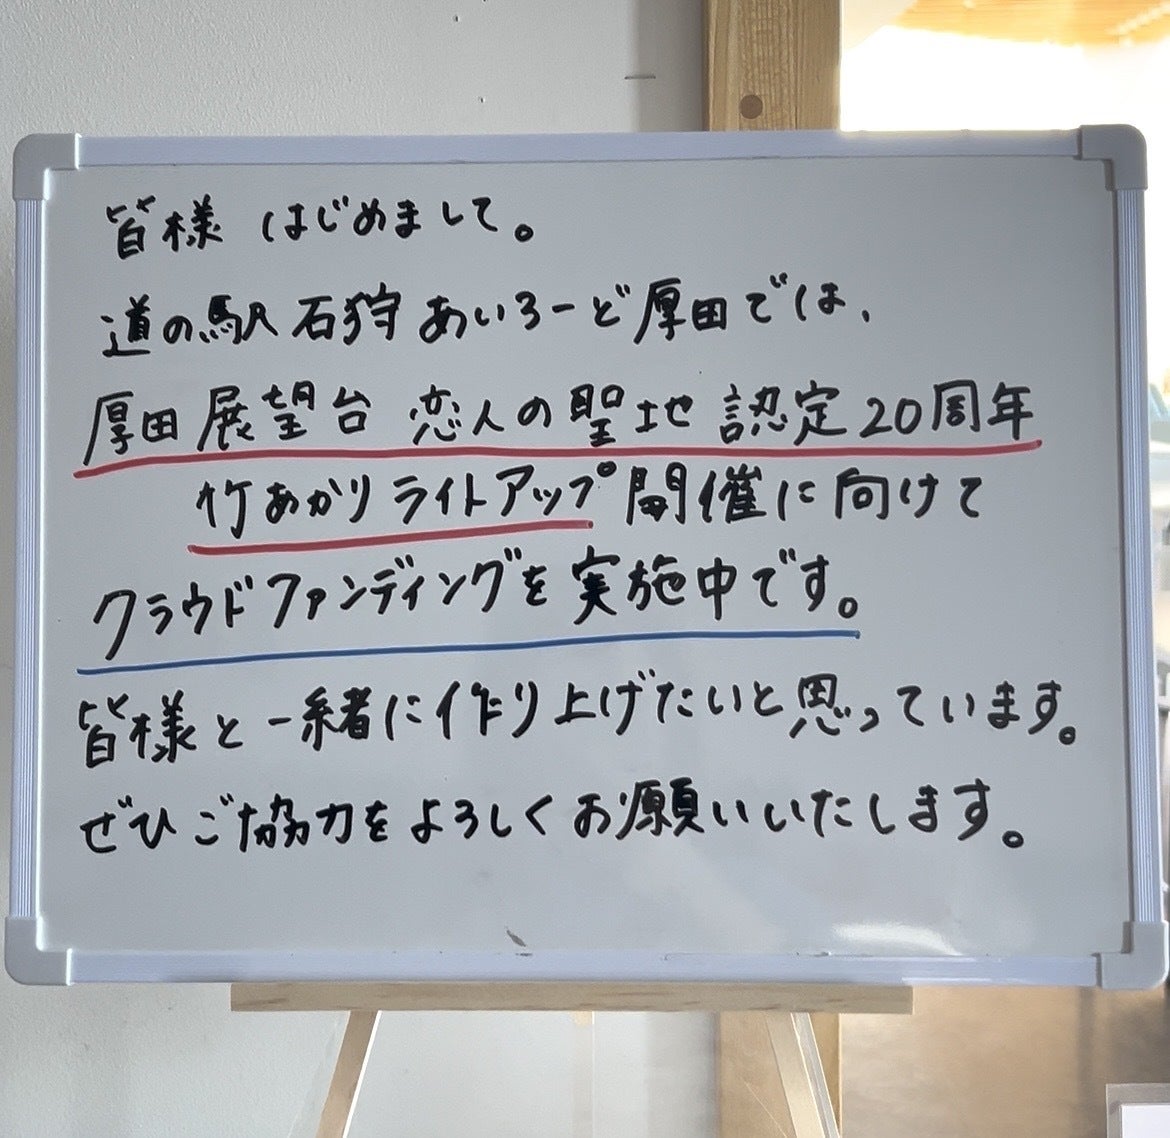 皆様 はじめまして。
道の駅 石狩 あいろーど厚田では、
厚田展望台 恋人の聖地 認定20周年
竹あかり ライトアップ 開催に向けて
クラウドファンディングを実施中です。
皆様と一緒に作り上げたいと思っています。
ぜひご協力をよろしくお願いいたします。